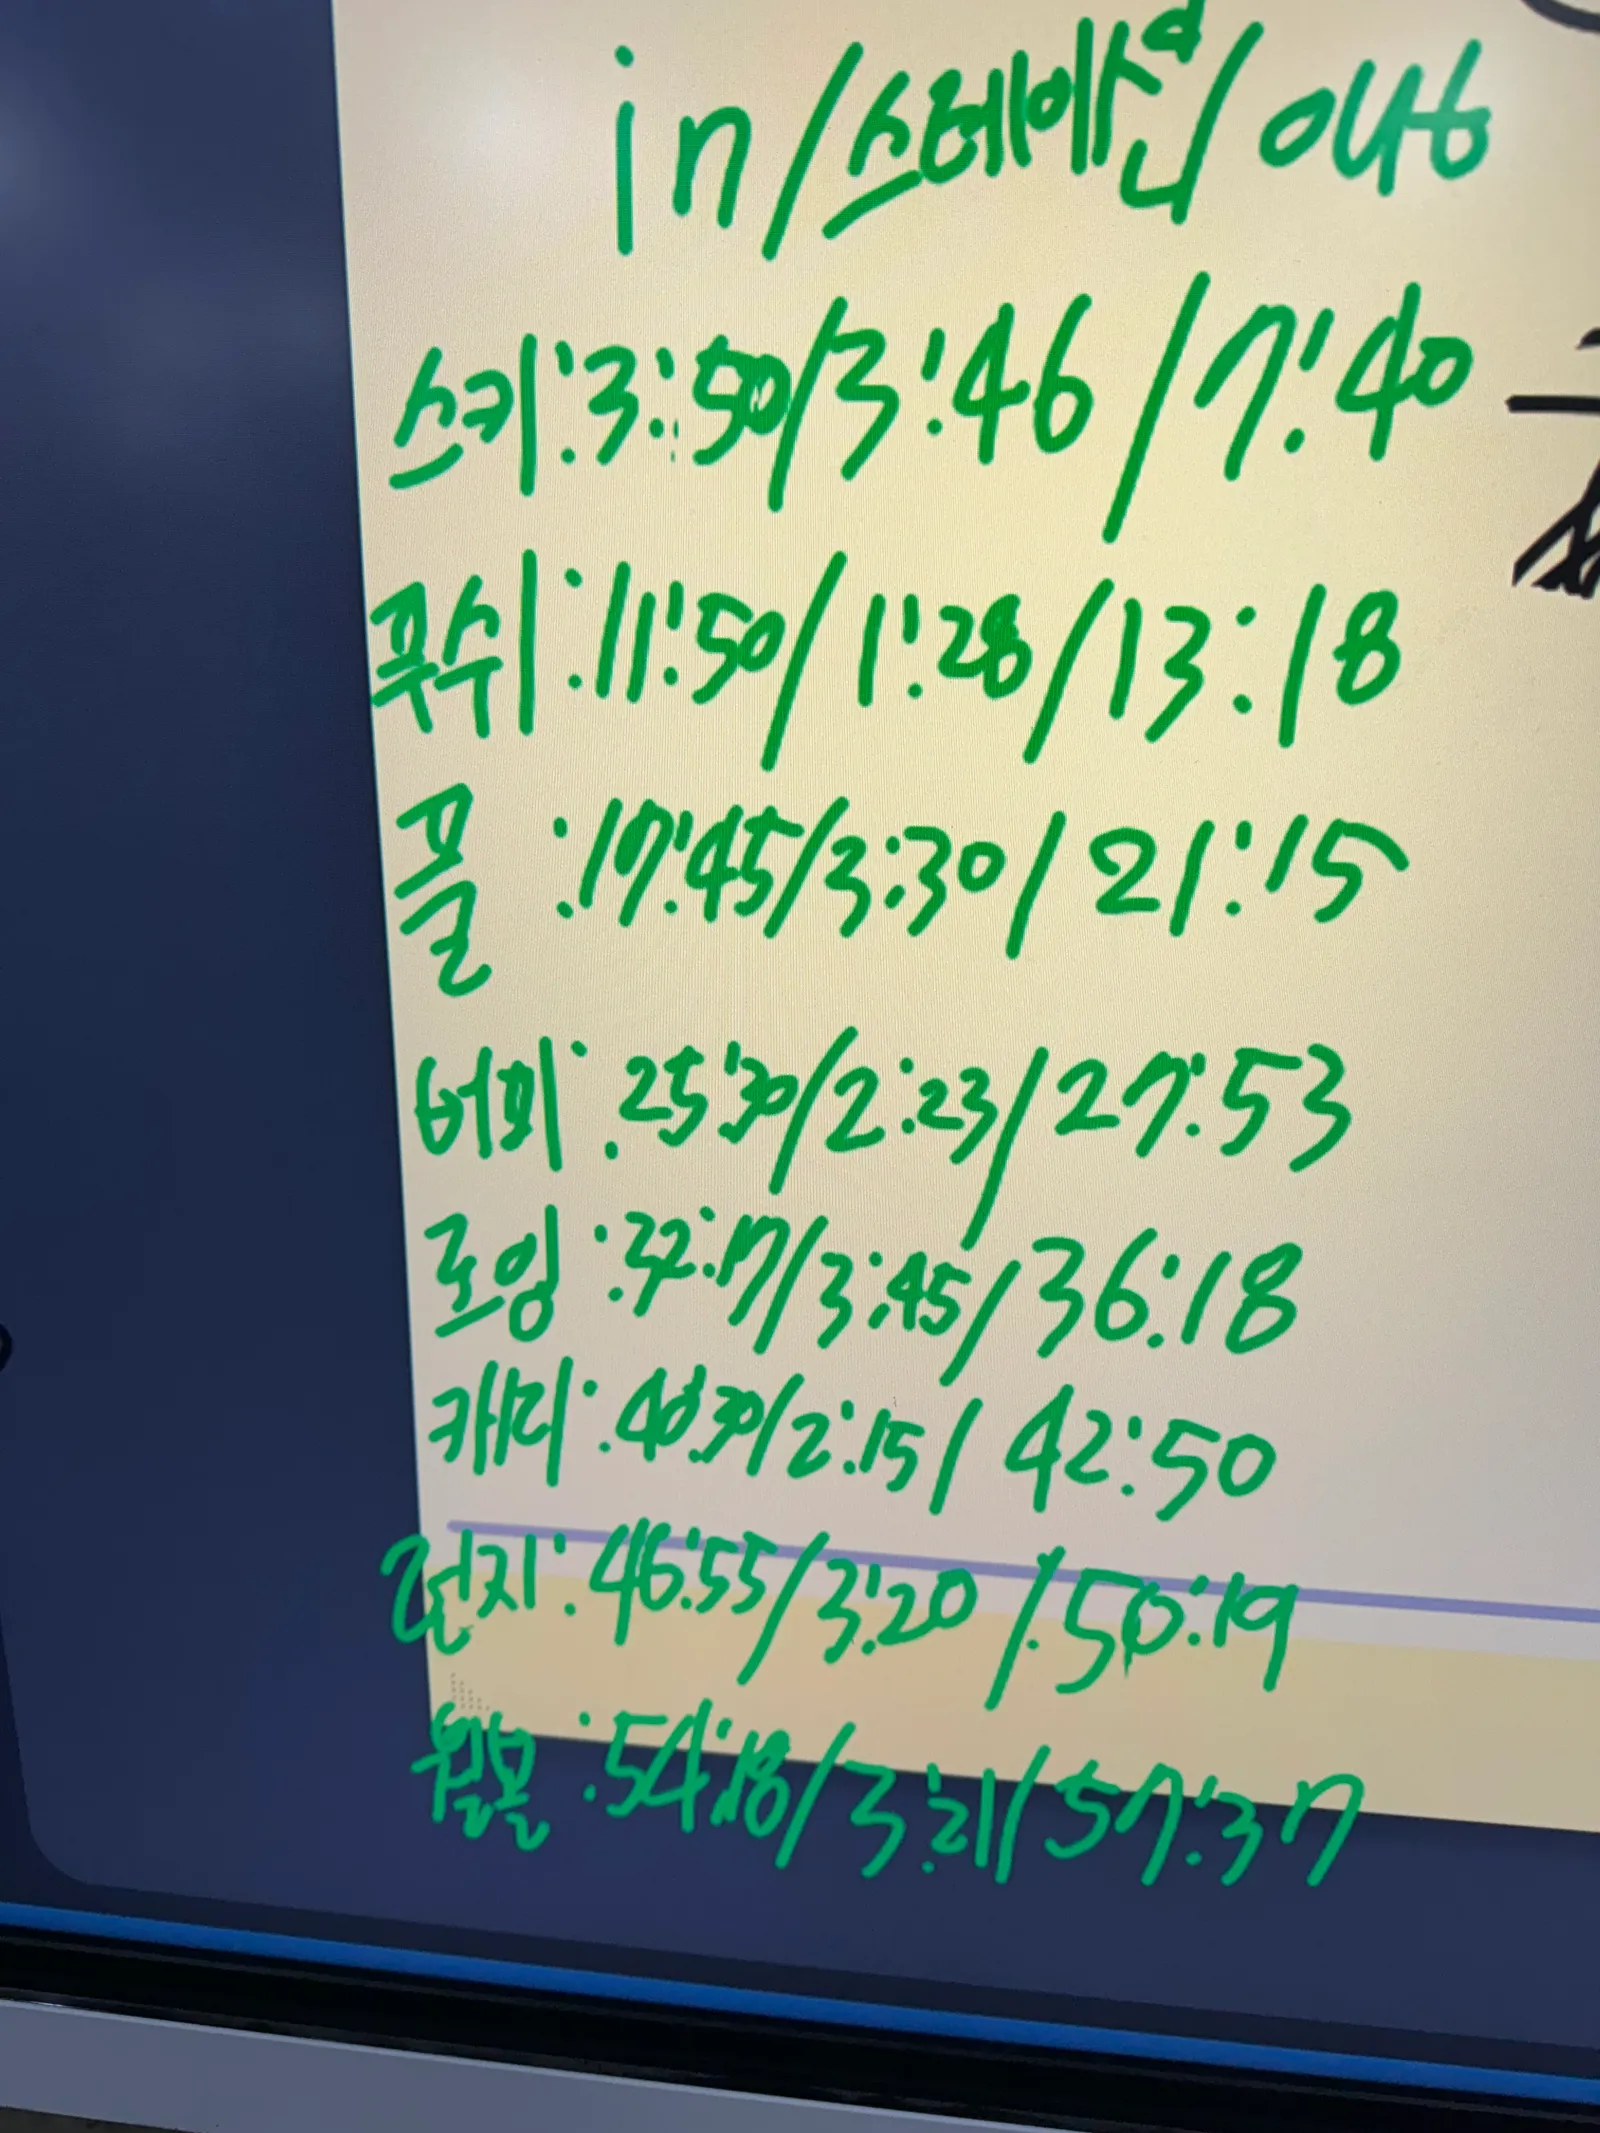 in/스테이션/out
스키:3:50/3:46/7:40
푸쉬:11:50/1:28/13:18
풀:17:45/3:30/21:15
버피:25:30/2:23/27:53
로잉:32:17/3:45/36:18
캐리:40:30/2:15/42:50
런지:46:55/3:20/:50:19
월볼:54:18/3:21/57:37